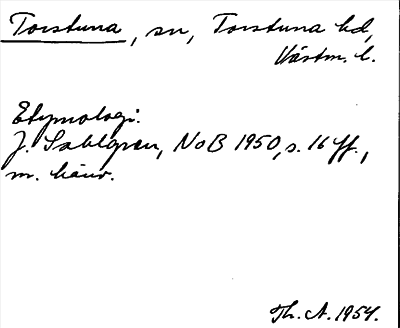 Torstuna, sn, Torstuna hd,
Västm. l.
Etymologi:
J. Sahlgren, NoB 1950, s. 16 ff.,
m. hänv.
Th. A. 1954.